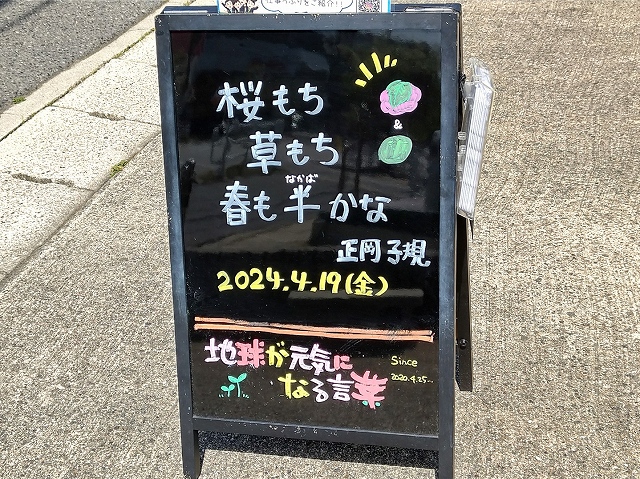 桜もち
&
草もち
なかば
春も半かな
正岡子規
2024.4.19(金)
地球が元気に
なる言葉
Since
2020.4.25...